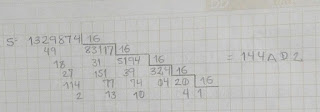 5- 1329874 16
49 83117 16
18 31 5194 16 = 144AD2
27 151 39 324 16
114 77 74 04 20 16
2 13 10 4 1